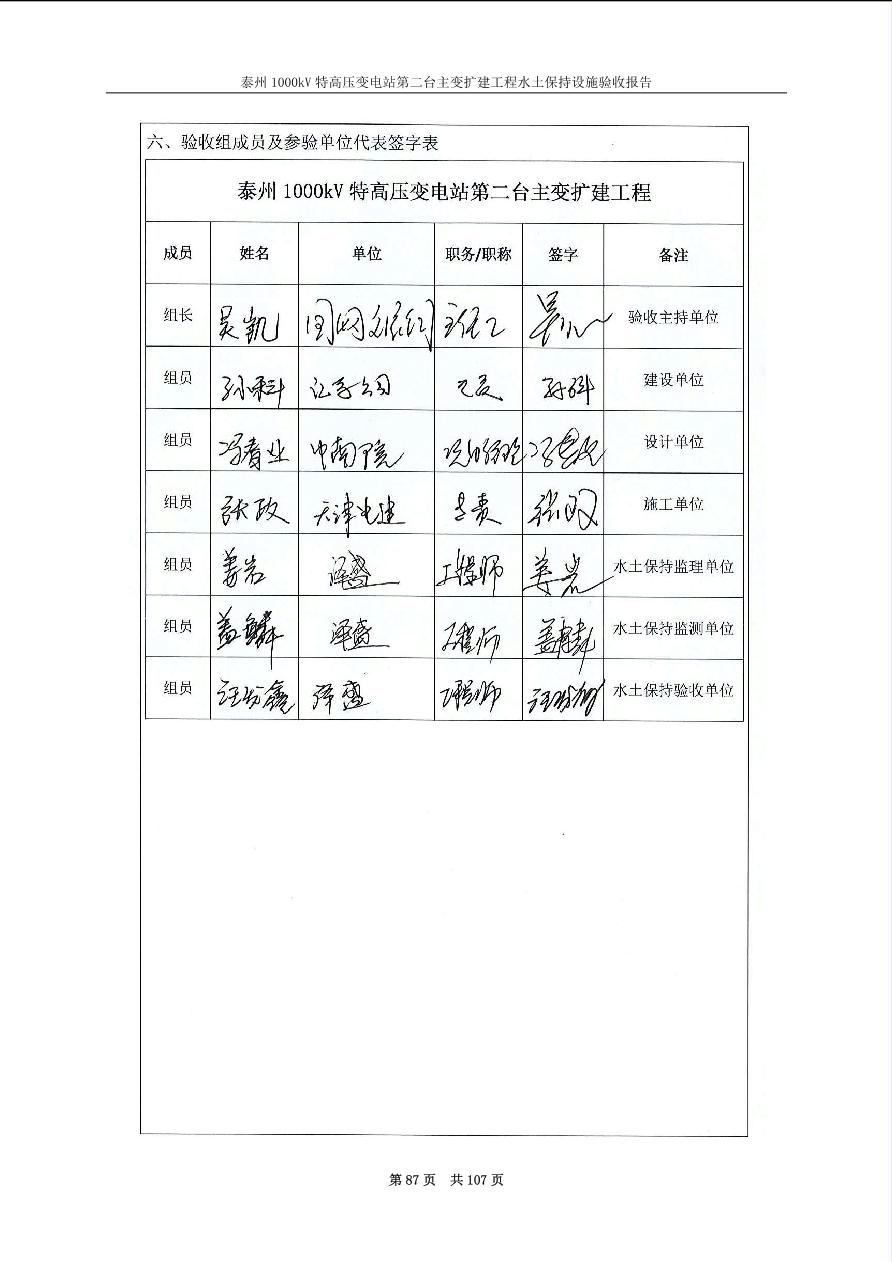 泰州 1000kV 特高压变电站第二台主变扩建工程水土保持设施验收报告
六、验收组成员及参验单位代表签字表
泰州 1000kV 特高压变电站第二台主变扩建工程
成员 姓名 单位 职务/职称 签字 备注
组长 吴凯 国网 验收主持单位
组员 孙科 公司 建设单位
组员 冯春业 中南院 设计单位
组员 张政 天津电建 施工单位
组员 姜岩 泽盛 工程师 姜岩 水土保持监理单位
组员 泽盛 工程师 水土保持监测单位
组员 泽盛 工程师 水土保持验收单位
第 87 页 共 107 页